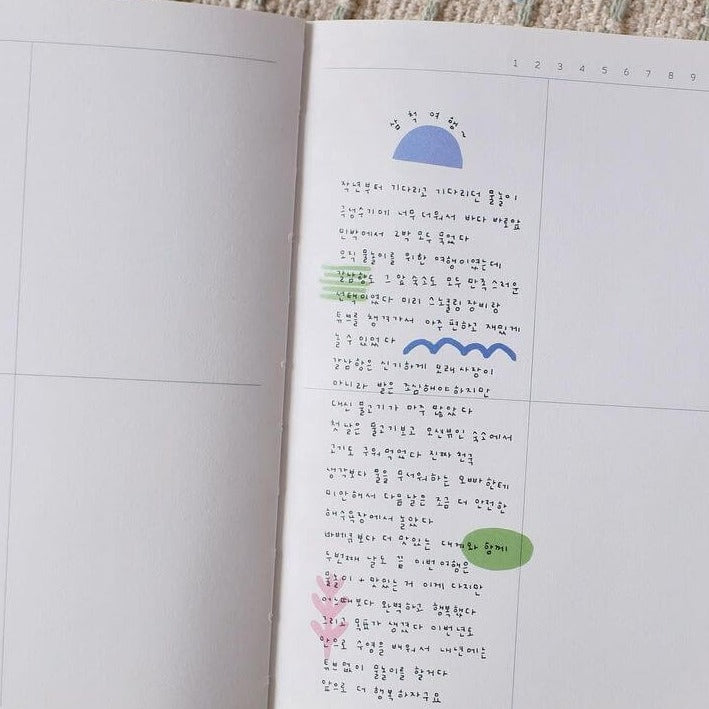 1 2 3 4 5 6 7 8 9
삼척여행
작년부터 기다리고 기다리던 물놀이
극성수기에 너무 더워서 바다 바로앞
민박에서 2박 모두 묵었다
오직 물놀이를 위한 여행이였는데
갈남항도 그 앞 숙소도 모두 만족스러운
선택이였다 미리 스노쿨링 장비랑
튜브를 챙겨가서 아주 편하고 재밌게
놀 수 있었다
갈남항은 신기하게 모래사장이
아니라 발은 조심해야하지만
대신 물고기가 아주 많았다
첫날은 물고기보고 오션뷰인 숙소에서
고기도 구워먹었다 진짜 천국
생각보다 물을 무서워하는 오빠한테
미안해서 다음날은 조금 더 안전한
해수욕장에서 놀았다
바베큐보다 더 맛있는 대게와 함께
두번째 날도 끝 이번여행은
물놀이 + 맛있는거 이게 다지만
어느때보다 완벽하고 행복했다
그리고 목표가 생겼다 이번년도
앞으로 수영을 배워서 내년에는
튜브없이 물놀이를 할거다
앞으로 더 행복하자구요